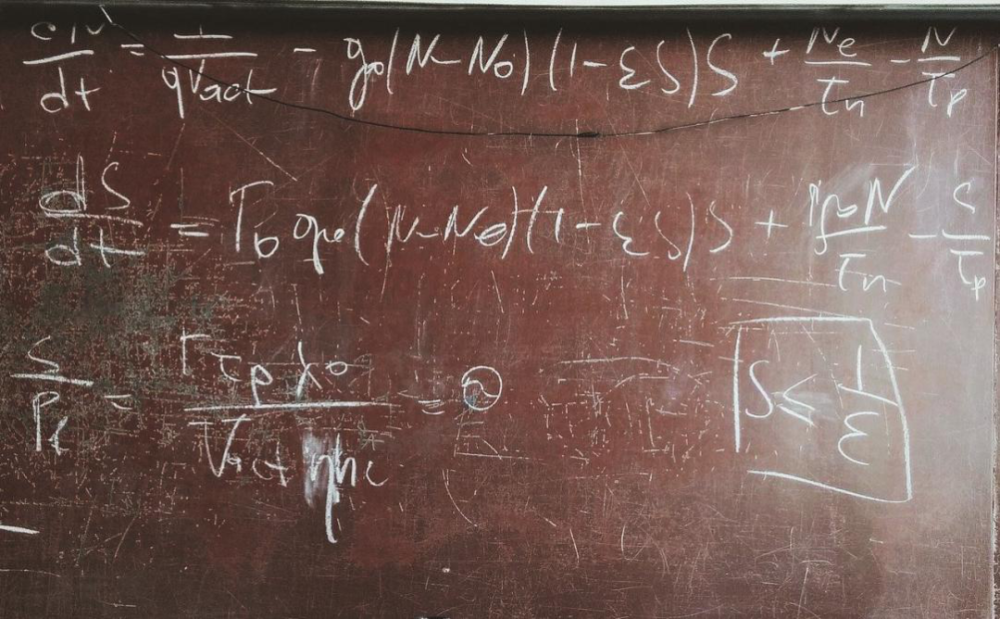 dN/dt = I/qVact - g₀(N-N₀)(1-εS)S + Ne/τn - N/τp
dS/dt = Γ₀ g₀(N-N₀)(1-εS)S + N/τn - S/τp
S/Pf = Γτpλ₀/Vact ηhc = 2
S ≤ 1/ε